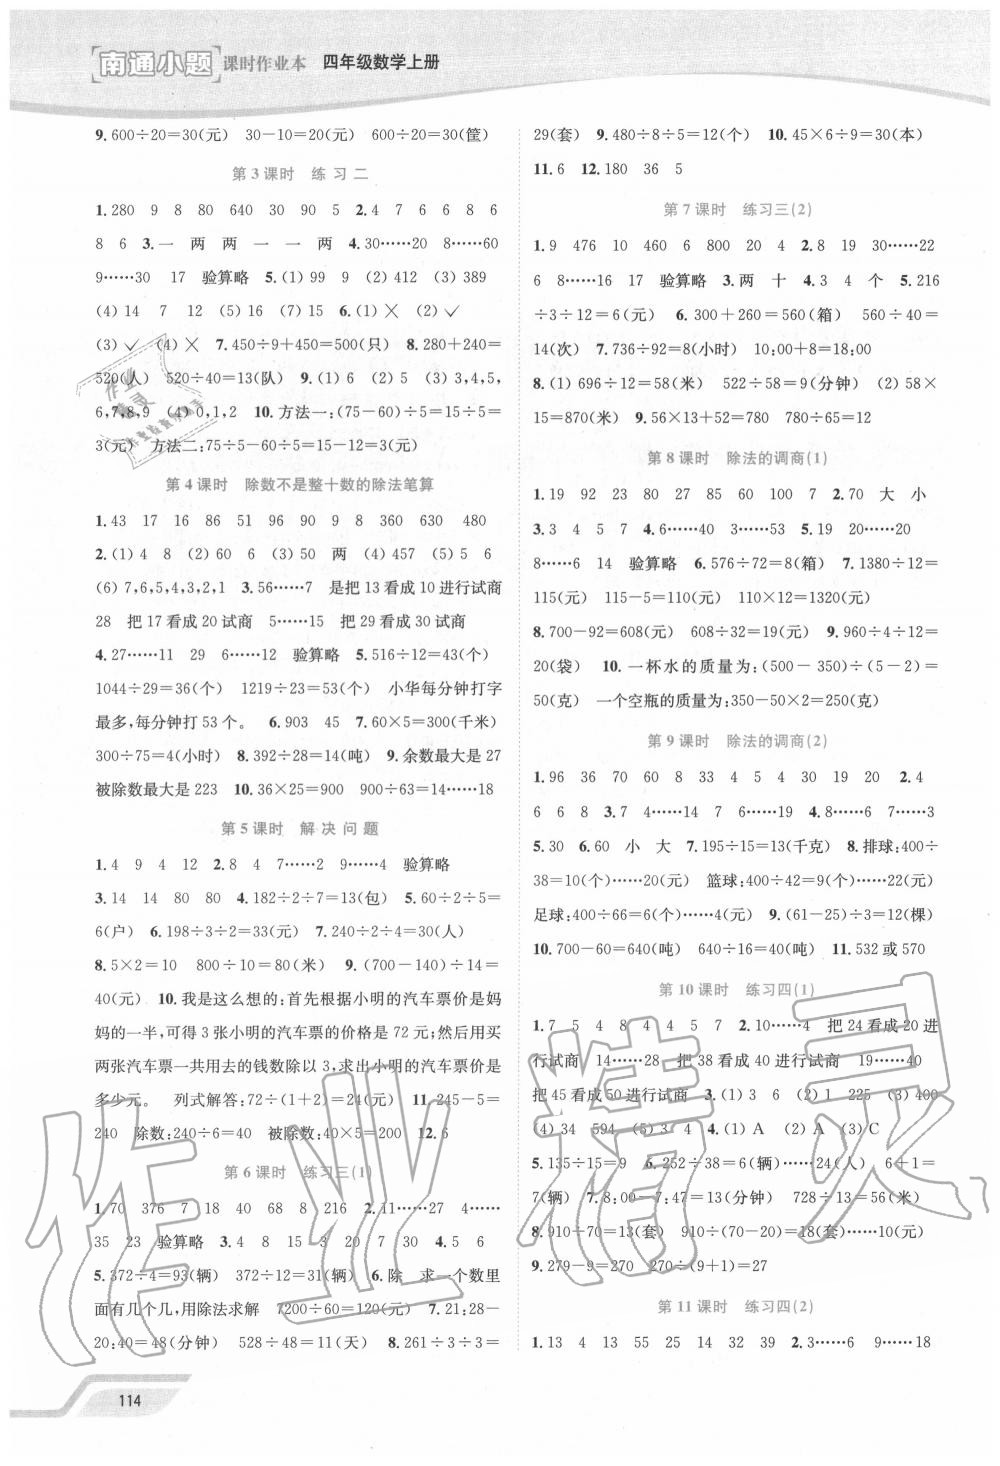 南通小题 课时作业本 四年级数学上册
9.600÷20=30(元) 30-10=20(元) 600÷20=30(筐)
第3课时 练习二
1.280 9 8 80 640 30 90 5 2.4 7 6 6 8 6
8 6 3.一 两 两 一 一 两 4.30……20 8……60
9……30 17 验算略 5.(1)99 9 (2)412 (3)389
(4)14 7 12 (5)16 (7)15 6.(1)✕ (2)✓
(3)✓ (4)✕ 7.450÷9+450=500(只) 8.280+240=
520(人) 520÷40=13(队) 9.(1)6 (2)3 (3)3,4,5,
6,7,8,9 (4)0,1,2 10.方法一:(75-60)÷5=15÷5=
3(元) 方法二:75÷5-60÷5=15-12=3(元)
第4课时 除数不是整十数的除法笔算
1.43 17 16 86 51 96 90 9 8 360 630 480
2.(1)4 8 (2)60 6 (3)50 两 (4)457 (5)5 6
(6)7,6,5,4,3,2,1 3.56……7 是把13看成10进行试商
28 把17看成20试商 5……15 把29看成30试商
4.27……11 29 6……12 验算略 5.516÷12=43(个)
1044÷29=36(个) 1219÷23=53(个) 小华每分钟打字
最多,每分钟打53个。 6.903 45 7.60×5=300(千米)
300÷75=4(小时) 8.392÷28=14(吨) 9.余数最大是27
被除数最大是223 10.36×25=900 900÷63=14……18
第5课时 解决问题
1.4 9 4 12 2.8 4 7……2 9……4 验算略
3.14 14 80 80 4.182÷2÷7=13(包) 5.60÷2÷5=
6(户) 6.198÷3÷2=33(元) 7.240÷2÷4=30(人)
8.5×2=10 800÷10=80(米) 9.(700-140)÷14=
40(元) 10.我是这么想的:首先根据小明的汽车票价是妈
妈的一半,可得3张小明的汽车票的价格是72元;然后用买
两张汽车票一共用去的钱数除以3,求出小明的汽车票是
多少元。 列式解答:72÷(1+2)=24(元) 11.245-5=
240 除数:240÷6=40 被除数:40×5=200 12.6
第6课时 练习三(1)
1.70 376 7 18 40 68 8 216 2.11……27 4……
35 23 验算略 3.4 8 15 3 20 50 4.5 6
5.372÷4=93(辆) 372÷12=31(辆) 6.除 求一个数里
面有几个几,用除法求解 7200÷60=120(元) 7.21:28-
20:40=48(分钟) 528÷48=11(天) 8.261÷3÷3=
29(套) 9.480÷8÷5=12(个) 10.45×6÷9=30(本)
11.6 12.180 36 5
第7课时 练习三(2)
1.9 476 10 460 6 800 20 4 2.8 19 30……22
6 8……16 17 验算略 3.两 十 4.3 4 个 5.216
÷3÷12=6(元) 6.300+260=560(箱) 560÷40=
14(次) 7.736÷92=8(小时) 10:00+8=18:00
8.(1)696÷12=58(米) 522÷58=9(分钟) (2)58×
15=870(米) 9.56×13+52=780 780÷65=12
第8课时 除法的调商(1)
1.19 92 23 80 27 85 60 100 7 2.70 大 小
3.3 4 5 7 4.6……40 3……53 5.19 20……20
8……6 14 验算略 6.576÷72=8(箱) 7.1380÷12=
115(元) 115-5=110(元) 110×12=1320(元)
8.700-92=608(元) 608÷32=19(元) 9.960÷4÷12=
20(袋) 10.一杯水的质量为:(500-350)÷(5-2)=
50(克) 一个空瓶的质量为:350-50×2=250(克)
第9课时 除法的调商(2)
1.96 36 70 60 8 33 4 5 4 30 19 20 2.4
6 6 8 3.7 4……4 7 6……19 4.8……6 7……3
5.30 6.60 小 大 7.195÷15=13(千克) 8.排球:400÷
38=10(个)……20(元) 篮球:400÷42=9(个)……22(元)
足球:400÷66=6(个)……4(元) 9.(61-25)÷3=12(棵)
10.700-60=640(吨) 640÷16=40(吨) 11.532或570
第10课时 练习四(1)
1.7 5 4 8 4 4 5 7 2.10……4 把24看成20进
行试商 14……28 把38看成40进行试商 19……40
把45看成50进行试商 3.(1)3 6 (2)1 225 (3)400
(4)34 594 (5)3 4 4.(1)A (2)A (3)C
5.135÷15=9 6.252÷38=6(辆)……24(人) 6+1=
7(辆) 7.8:00-7:47=13(分钟) 728÷13=56(米)
8.910÷70=13(套) 910÷50=18(套)……10(元)
9.279-9=270 270÷(9+1)=27
第11课时 练习四(2)
1.13 4 13 55 25 14 32 39 2.3……6 9……18
114
作业精灵